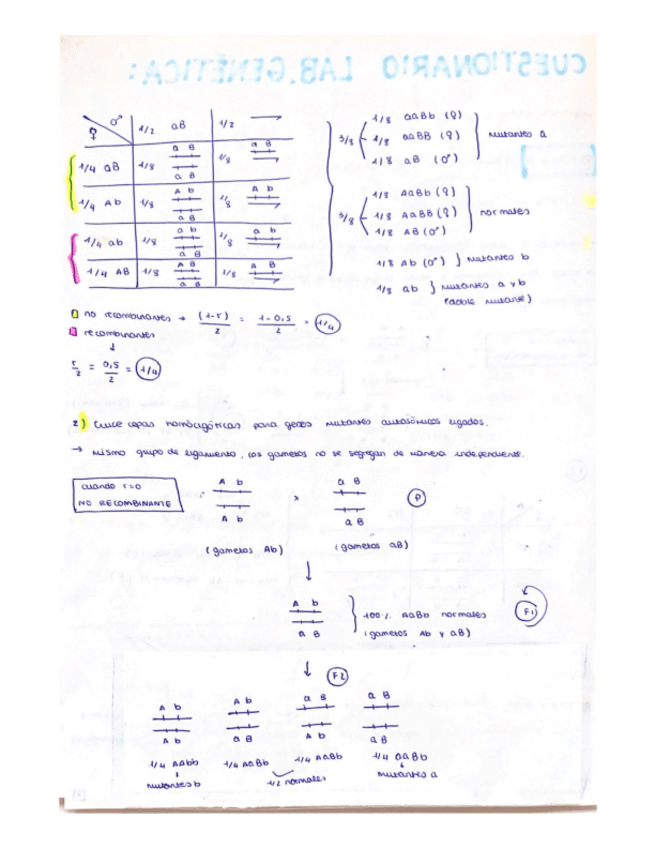 CUESTIONARIO LAB.GENÉTICA:
♀ ♂ 1/2 aB 1/2
1/4 aB 1/8 a B a B 1/8 a B
1/4 Ab 1/8 A b a B 1/8 A b
1/4 ab 1/8 a b a B 1/8 a b
1/4 AB 1/8 A B a B 1/8 A B
3/8 1/8 aaBb (♀)
1/8 aaBB (♀) mutantes a
1/8 aB (♂)
3/8 1/8 AaBb (♀)
1/8 AaBB (♀) normales
1/8 AB (♂)
1/8 Ab (♂) } mutantes b
1/8 ab } mutantes a y b
(doble mutante)
no recombinantes → (1-r)/2 = 1-0,5/2 = 1/4
recombinantes
↓
r/2 = 0,5/2 = 1/4
2) Cruce cepas homocigóticas para genes mutantes autosómicos ligados.
→ mismo grupo de ligamiento, los gametos no se segregan de manera independiente.
cuando r=0
NO RECOMBINANTE
A b a B
x P
A b a B
(gametos Ab) (gametos aB)
↓
A b
a B
100% AaBb normales
(gametos Ab y aB)
F1
↓ F2
A b A b a B a B
A b a B A b a B
1/4 AAbb 1/4 AaBb 1/4 AaBb 1/4 aaBb
mutantes b 1/2 normales mutantes a